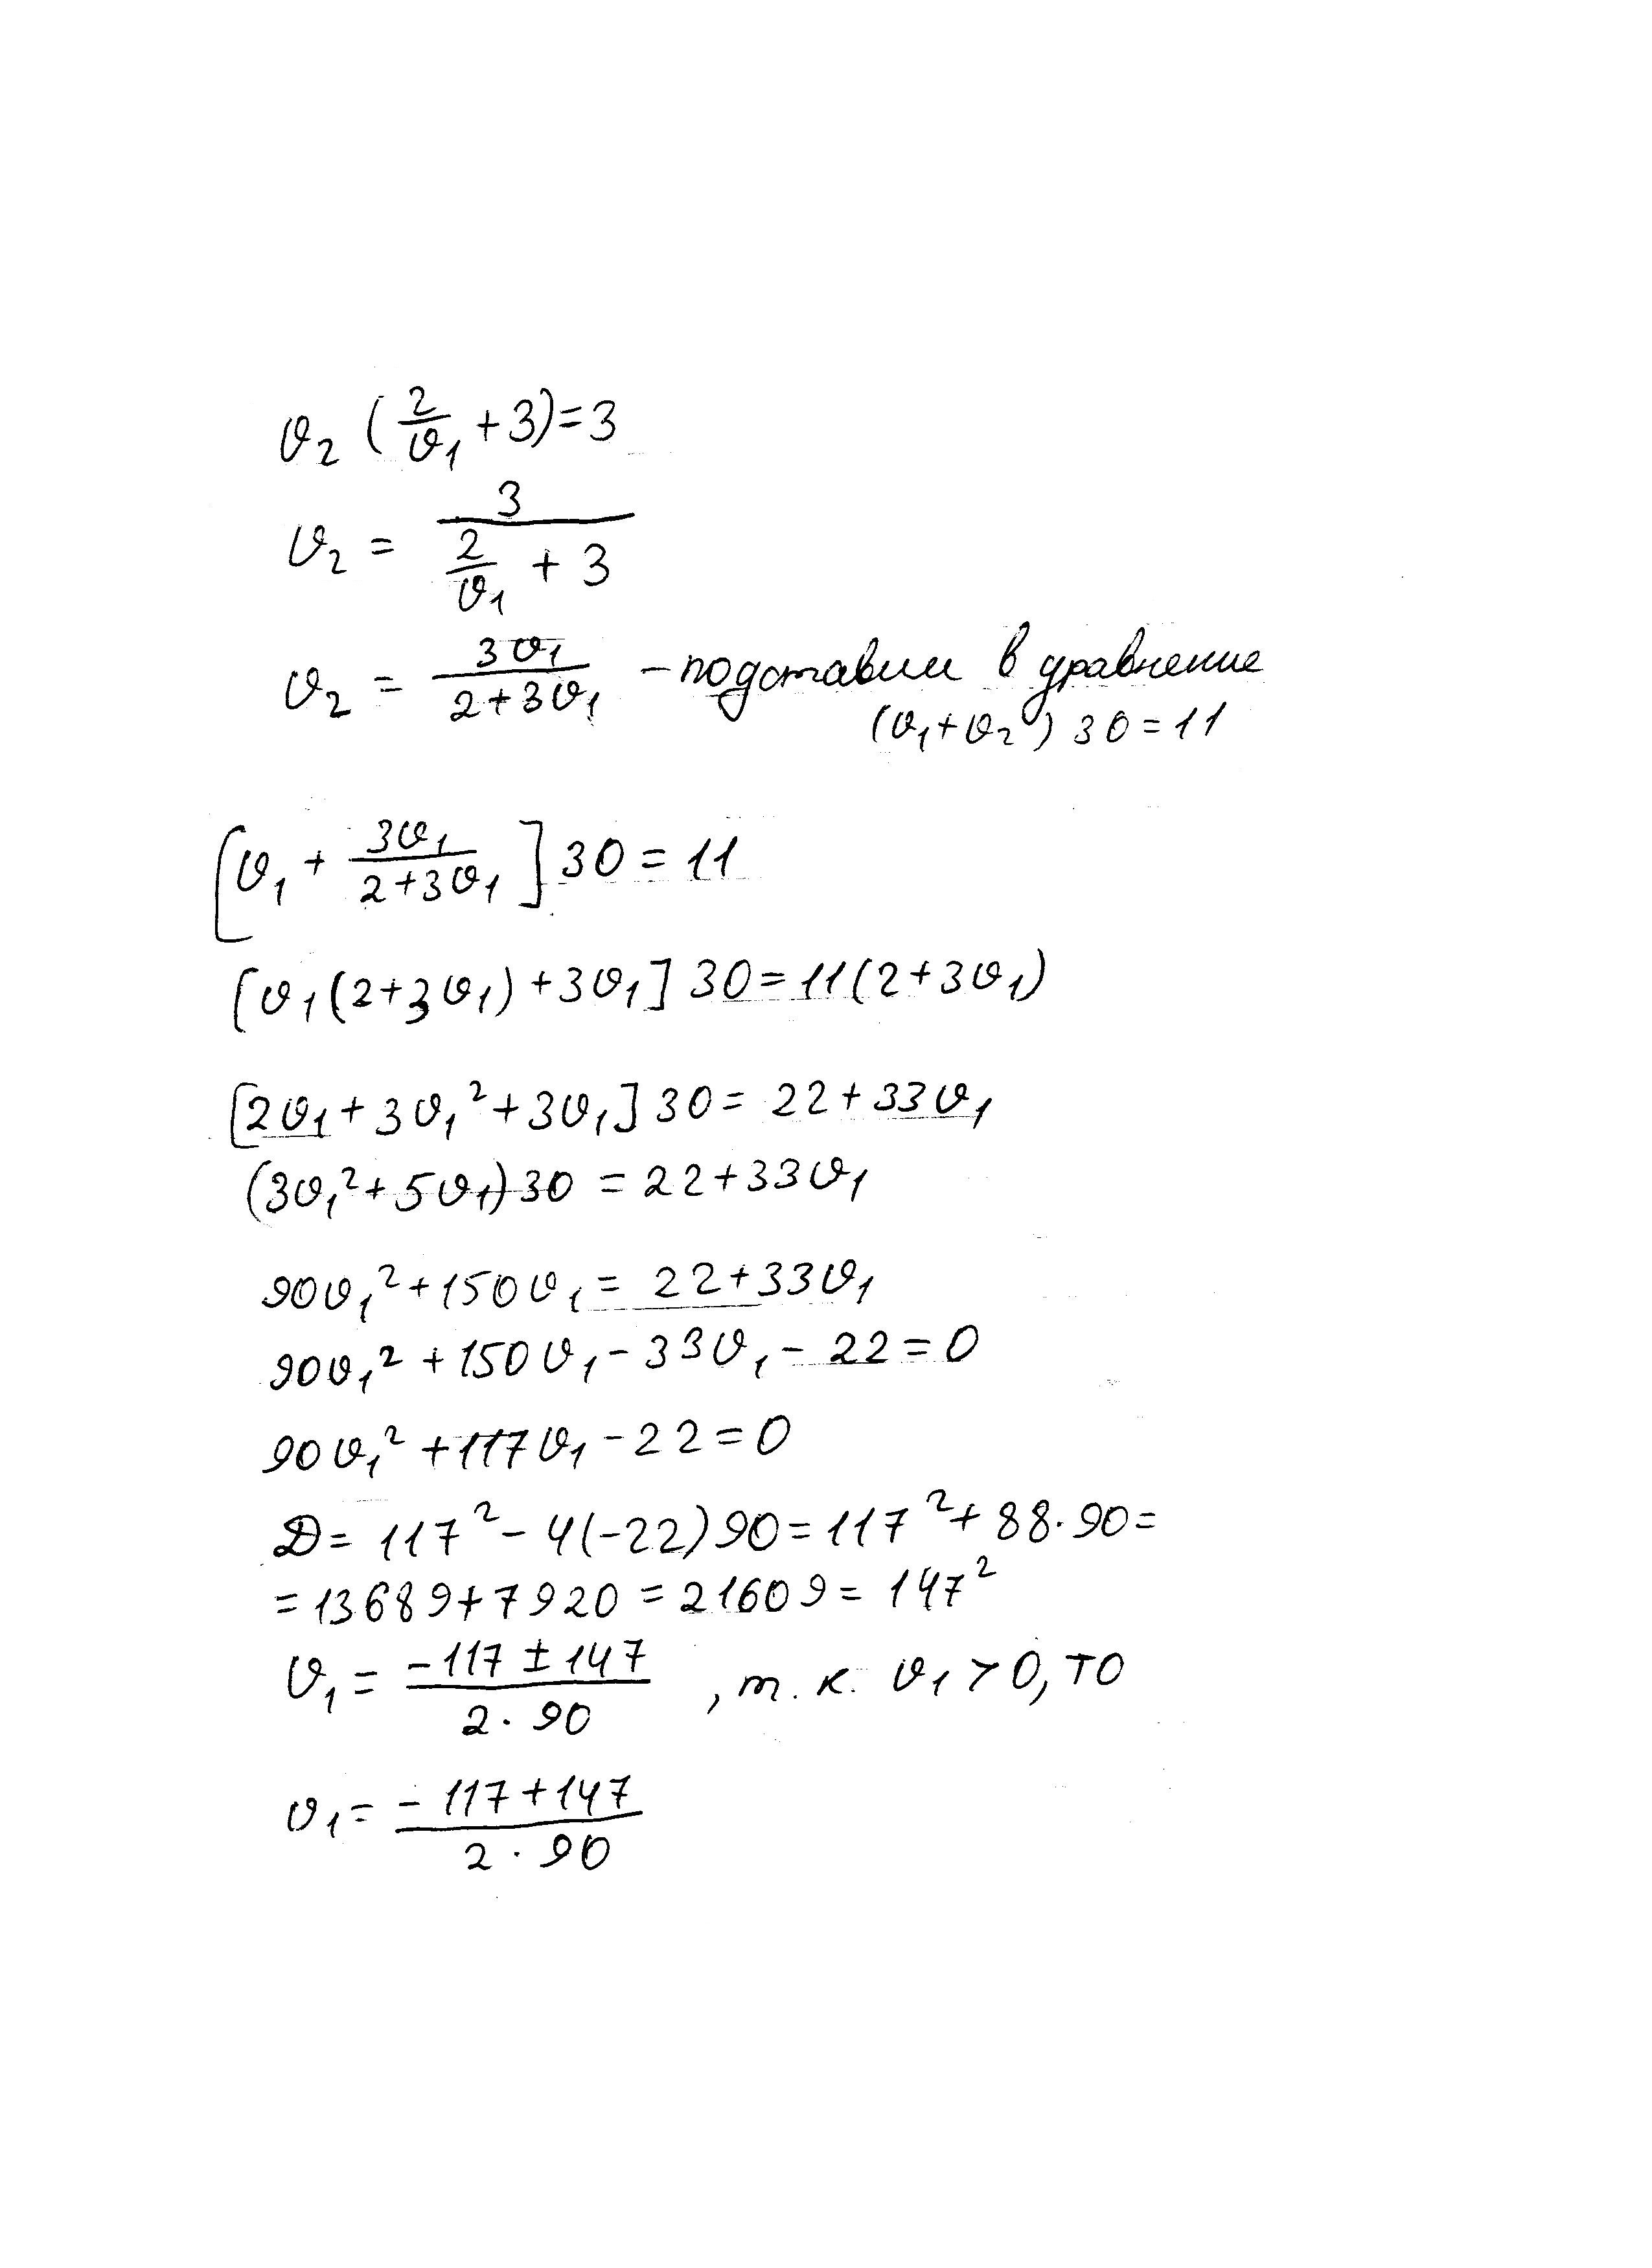 υ₂ (2/υ₁ + 3) = 3
υ₂ = 3/(2/υ₁ + 3)
υ₂ = 3υ₁/(2+3υ₁) – подставим в уравнение
(υ₁+υ₂) 30 = 11
[υ₁ + 3υ₁/(2+3υ₁)] 30 = 11
[υ₁(2+3υ₁)+3υ₁] 30 = 11(2+3υ₁)
[2υ₁+3υ₁²+3υ₁] 30 = 22+33υ₁
(3υ₁²+5υ₁) 30 = 22+33υ₁
90υ₁²+150υ₁ = 22+33υ₁
90υ₁²+150υ₁-33υ₁-22=0
90υ₁²+117υ₁-22=0
Д = 117²-4(-22)90 = 117²+88·90=
=13689+7920=21609=147²
υ₁ = (-117±147)/(2·90), т.к. υ₁>0, то
υ₁ = (-117+147)/(2·90)